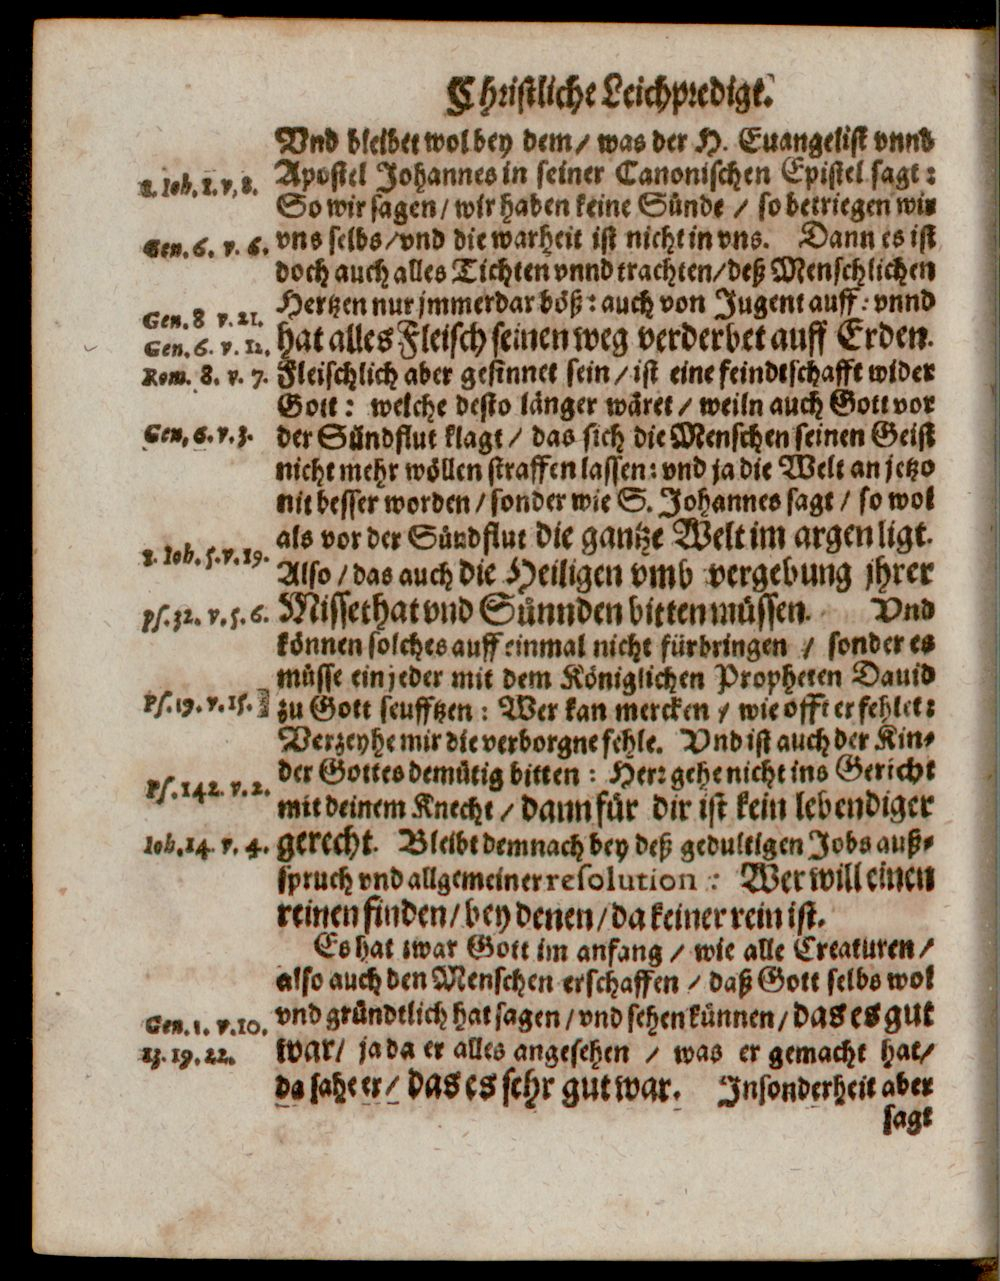 Christliche Leichpredigt.
Vnd bleibet wol bey dem / was der H. Euangelist vnnd
1. Ioh. 1. v. 8. Apostel Johannes in seiner Canonischen Epistel sagt:
So wir sagen / wir haben keine Sünde / so betriegen wir
Gen. 6. v. 6. vns selbs / vnd die warheit ist nicht in vns. Dann es ist
doch auch alles Tichten vnnd trachten / deß Menschlichen
Gen. 8 v. 21. Hertzen nur jmmerdar böß: auch von Jugent auff: vnnd
Gen. 6. v. 12. hat alles Fleisch seinen weg verderbet auff Erden.
Rom. 8. v. 7. Fleischlich aber gesinnet sein / ist eine feindtschafft wider
Gott: welche desto länger wäret / weiln auch Gott vor
Gen, 6. v. 3. der Sündflut klagt / das sich die Menschen seinen Geist
nicht mehr wöllen straffen lassen: vnd ja die Welt an jetzo
nit besser worden / sonder wie S. Johannes sagt / so wol
1. Ioh. 5. v. 19. als vor der Sündflut die gantze Welt im argen ligt.
Also / das auch die Heiligen vmb vergebung jhrer
Ps. 32. v. 5. 6. Missethat vnd Sünnden bitten müssen. Vnd
können solches auff einmal nicht fürbringen / sonder es
müsse ein jeder mit dem Königlichen Propheten Dauid
Ps. 19. v. 15. zu Gott seufftzen: Wer kan mercken / wie offt er fehlet:
Verzeyhe mir die verborgne fehle. Vnd ist auch der Kin-
Ps. 142. v. 2. der Gottes demütig bitten: Herr gehe nicht ins Gericht
mit deinem Knecht / dann für dir ist kein lebendiger
Iob. 14. v. 4. gerecht. Bleibt demnach bey deß gedultigen Jobs auß-
spruch vnd allgemeiner resolution: Wer will einen
reinen finden / bey denen / da keiner rein ist.
Es hat zwar Gott im anfang / wie alle Creaturen /
also auch den Menschen erschaffen / daß Gott selbs wol
Gen. 1. v. 10. vnd gründtlich hat sagen / vnd sehen künnen / das es gut
13. 19. 22. war / ja da er alles angesehen / was er gemacht hat /
da sahe er / das es sehr gut war. Insonderheit aber
sagt